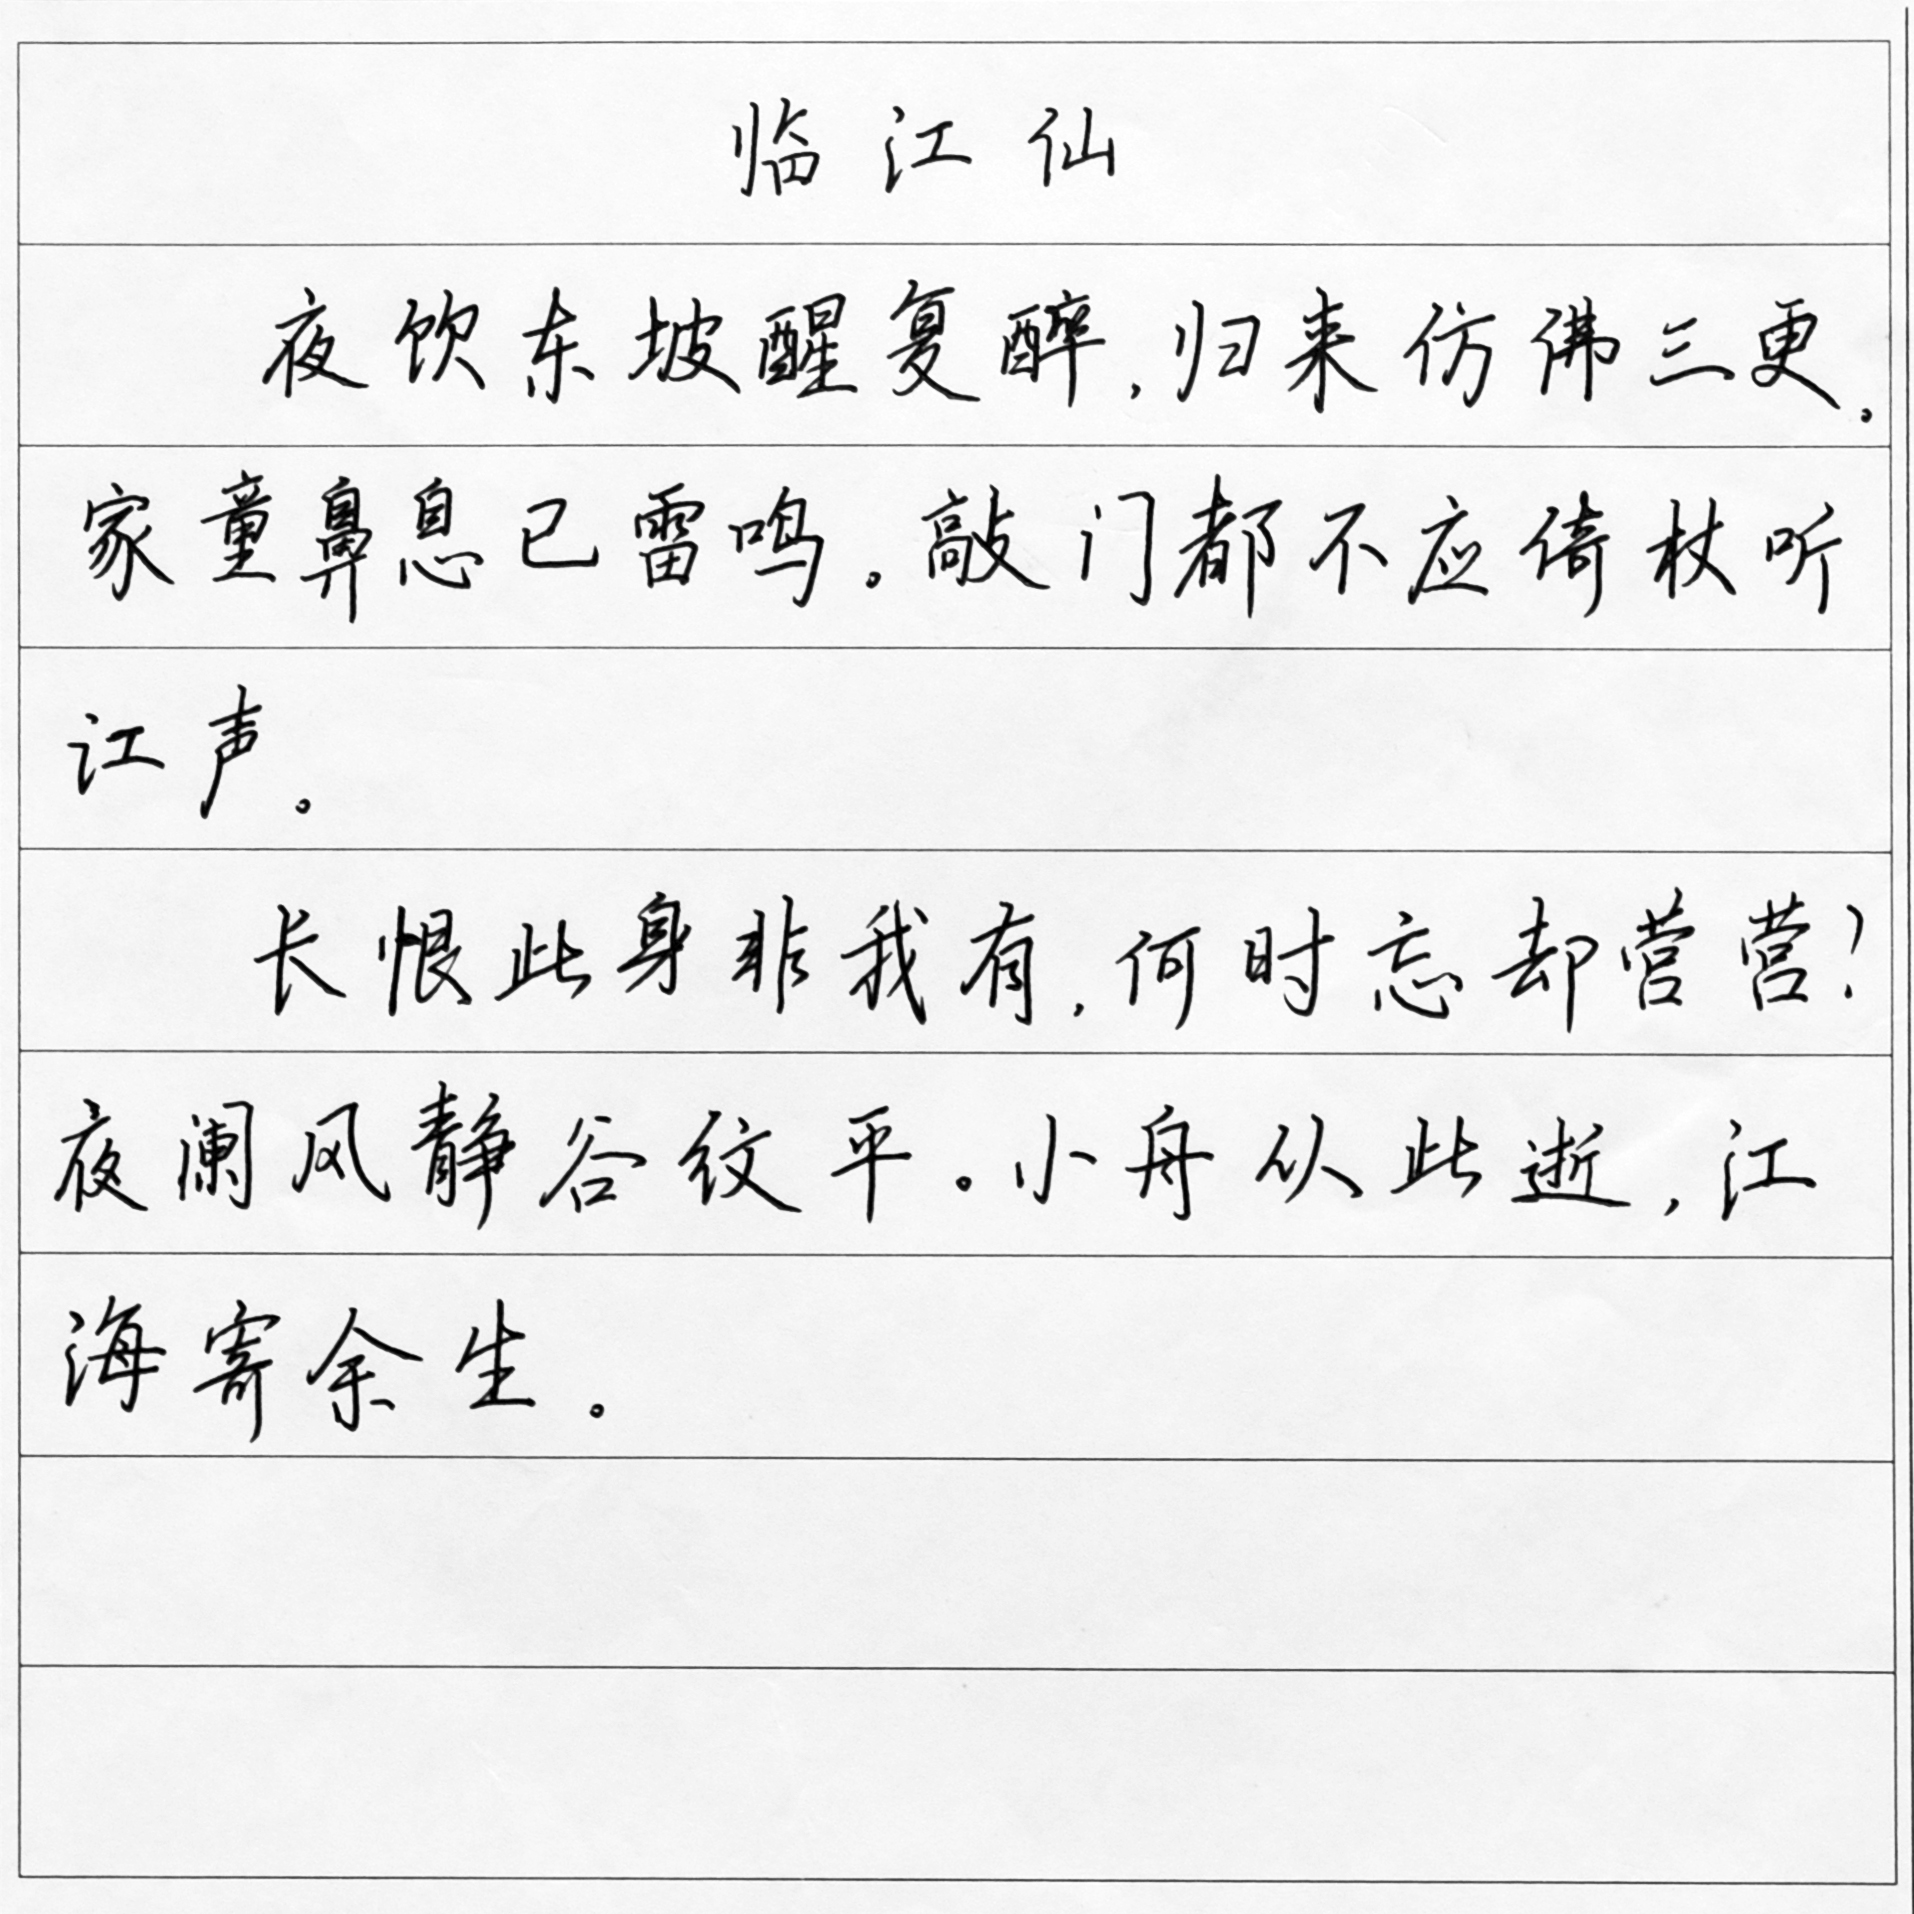 临江仙
夜饮东坡醒复醉,归来仿佛三更。
家童鼻息已雷鸣。敲门都不应倚杖听
江声。
长恨此身非我有,何时忘却营营?
夜阑风静谷纹平。小舟从此逝,江
海寄余生。